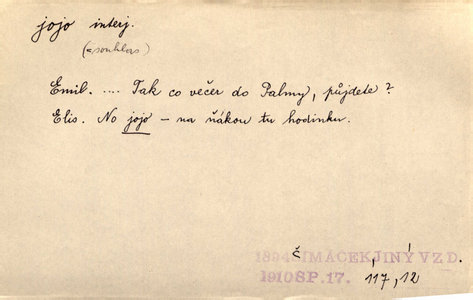 jojo interj.
(= souhlas)
Emil. .... Tak co večer do Palmy, půjdete?
Elis. No jojo – na ňákou tu hodinku.
1894 ŠIMÁČEK, JINÝ VZD.
1910 SP. 17. 117, 12